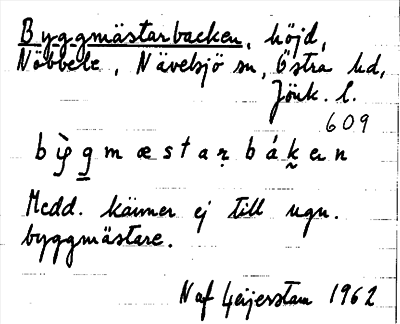 Byggmästarbacken, höjd,
Nöbbele, Nävelsjö sn, Östra hd,
Jönk. l.
609
bỳg̲mæstaṛbák̰ɐn
Medd. känner ej till ugn.
byggmästare.
N af Geijerstam 1962